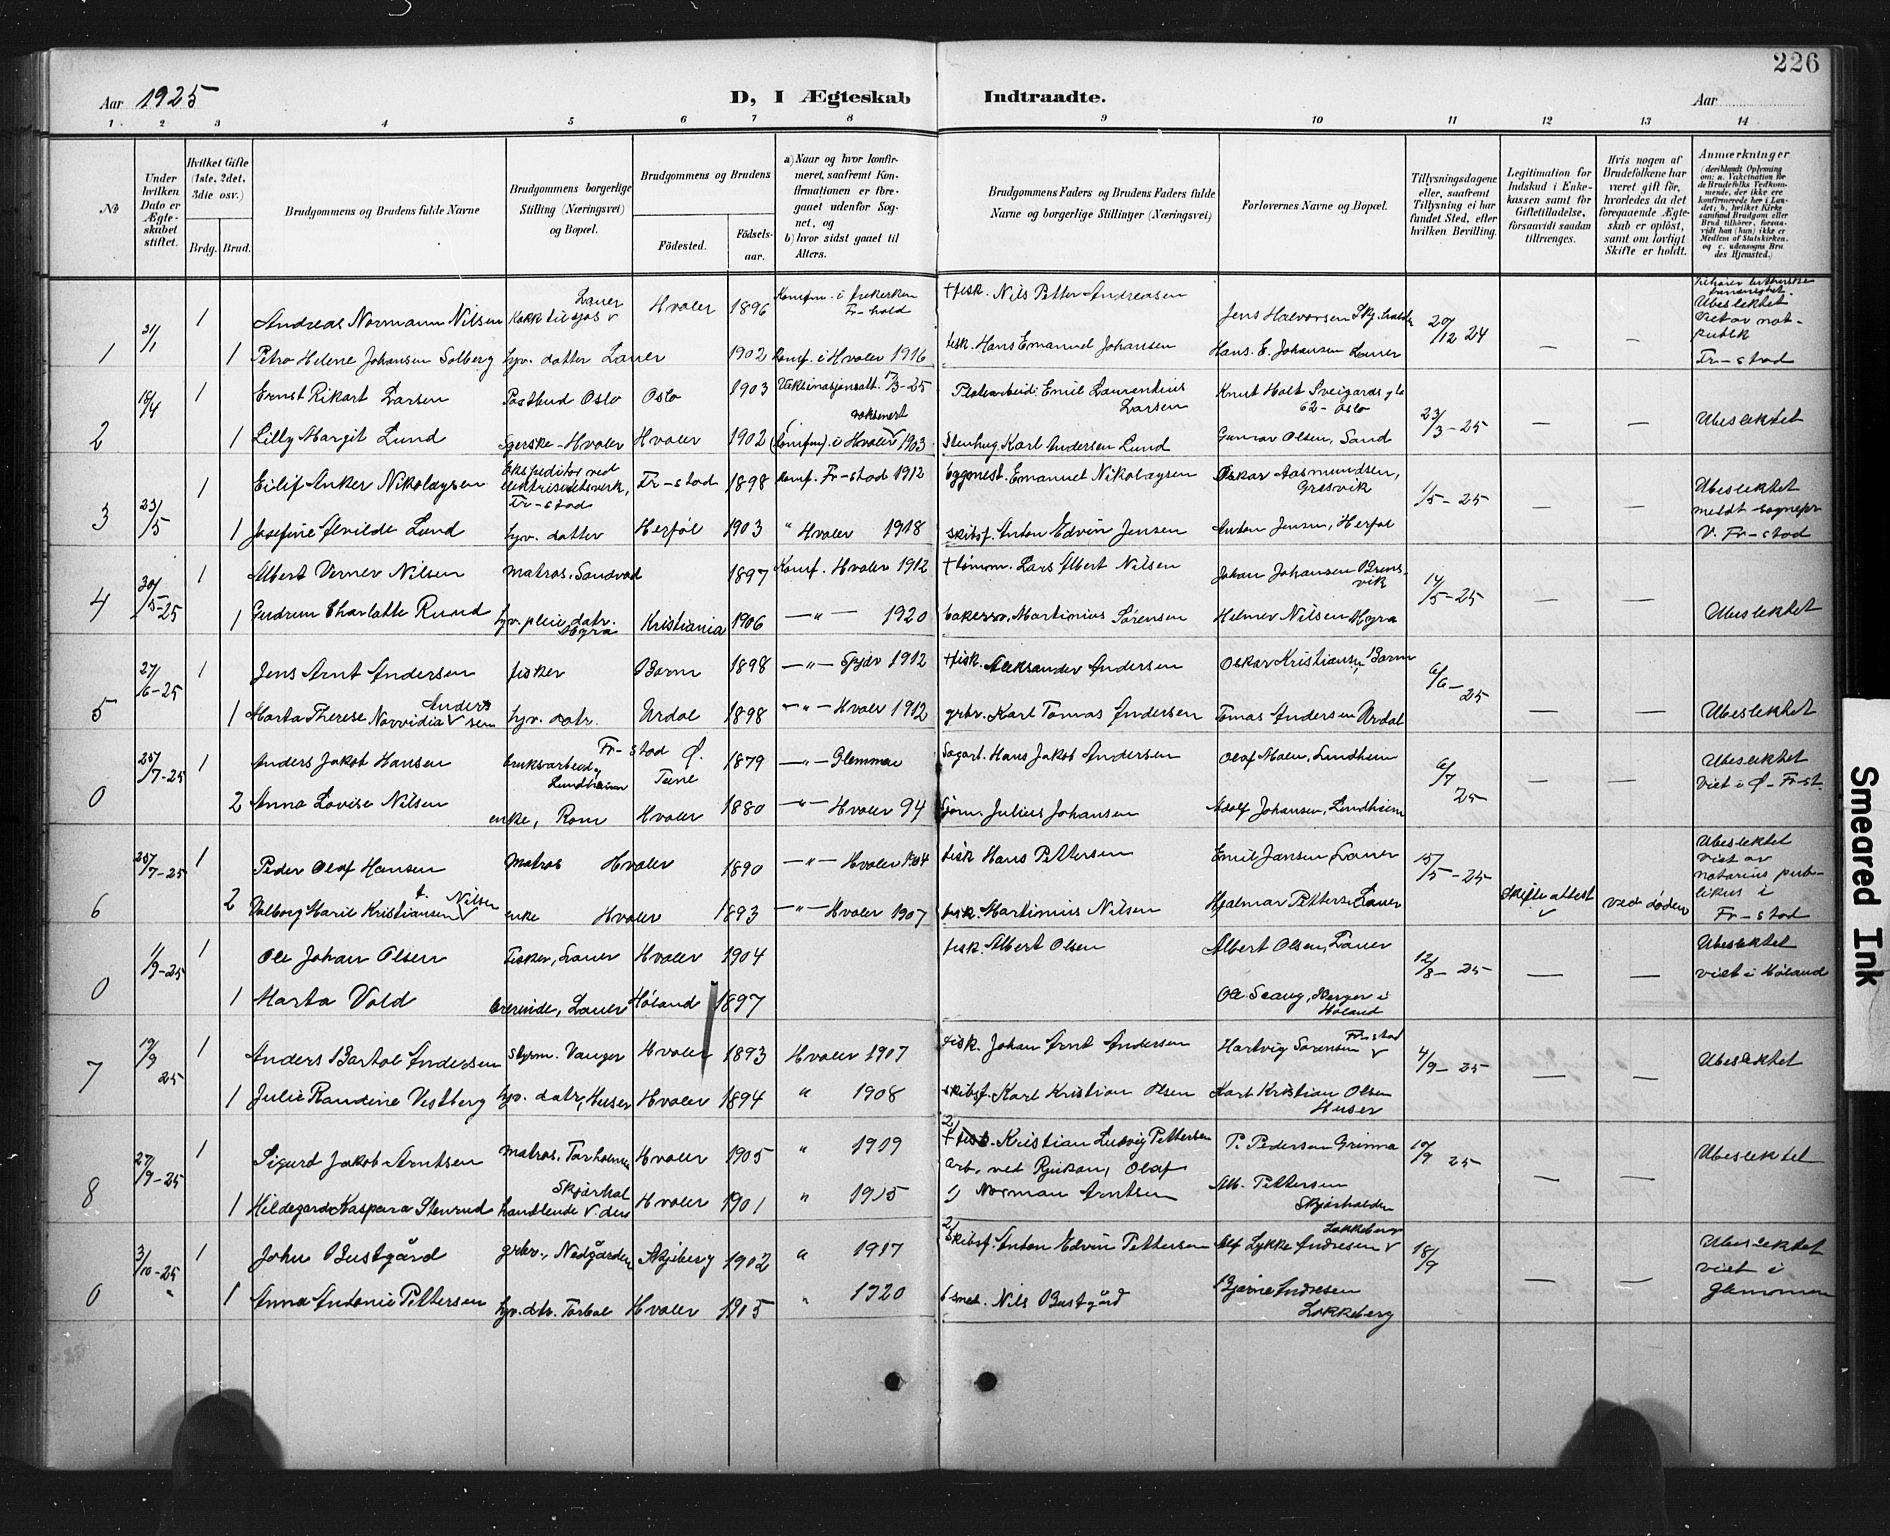 226
Aar 1925
D, I Ægteskab Indtraadte.
Aar
1 2 3 4 5 6 7 8 9 10 11 12 13 14
№
Under hvilken Dato er Ægteskabet stiftet.
Hvilket Gifte (1ste, 2det, 3die osv.)
Brdg. Brud.
Brudgommens og Brudens fulde Navne
Brudgommens borgerlige Stilling (Næringsvei) og Bopæl.
Brudgommens og Brudens
Fødested.
Fødselsaar.
a) Naar og hvor konfirmeret, saafremt Konfirmationen er foregaaet udenfor Sognet, og
b) hvor sidst gaaet til Alters.
Brudgommens Faders og Brudens Faders fulde Navne og borgerlige Stillinger (Næringsvei)
Forlovernes Navne og Bopæl.
Tillysningsdagene eller, saafremt Tillysning ei har fundet Sted, efter hvilken Bevilling.
Legitimation for Indskud i Enkekassen samt for Giftetilladelse, forsaavidt saadan tiltrænges.
Hvis nogen af Brudefolkene har været gift før, hvorledes da det foregaaende Ægteskab er opløst, samt om lovligt Skifte er holdt.
Anmærkninger
1 31/1 1 Andreas Normann Nilsen Kokk tilsjøs Lauer Hvaler 1896 Konfm. i frikirken Fr-hald † fisk. Nils Petter Andreasen Jens Halvorsen 20/12 24 — — Ubeslektet
1 Petra Helene Johansen Solberg hjv. datter Lauer 1902 Konf. i Hvaler 1916 fisk. Hans Emanuel Johansen Hans. E. Johansen Lauer Fr-stad
2 18/4 1 Ernst Rikart Larsen Postbud Oslo Oslo 1903 Emil Laurentius Larsen Knut Holt 62 - Oslo 23/3-25 — — Ubeslektet
1 Lilly Margit Lund Hvaler Hvaler 1902 i Hvaler 1903 Stenhug. Karl Andersen Lund Gunnar Olsen, Sand
3 23/5 1 Eilif Anker Nikolaysen Ekspeditør ved elektrisitetsverk, Fr-stad Fr-stad 1898 Konf. Fr-stad 1912 byggmest. Emanuel Nikolaysen Oskar Aasmundsen, Gresvik 1/5-25 — — Ubeslektet
1 Josefine Alvilde Lund hjv. datter Herføl 1903 " Hvaler 1918 skibsf. Anton Edvin Jensen Anton Jensen, Herføl V. Fr-stad
4 30/5-25 1 Albert Verner Nilsen Matros, Sandvad 1897 Konf. Hvaler 1912 † tømm. Lars Albert Nilsen Johan Johansen 14/5-25 — — Ubeslektet
1 Gudrun Charlotte Rund Kristiania 1906 — " — 1920 Martinius Sørensen Helmer Nilsen
5 27/6-25 1 Jens Arnt Andersen fisker Barm 1898 — " — Spjær 1912 † fisk. Aleksander Andersen Oskar Kristiansen, Barm 6/6-25 — — Ubeslektet
1 Marta Therese Norvidia Andersen hjv. datr. Urdal 1898 — " — Hvaler 1912 grbr. Karl Tomas Andersen Tomas Andersen Urdal
0 25/7-25 1 Anders Jakob Hansen bruksarbeid. Lundheim Fr-stad Ø. Tune 1879 — " — Glemmen Sagarb. Hans Jakob Andersen Olaf Moen, Lundheim 6/7 25 — — Ubeslektet viet i Ø-Fr-st.
2 Anna Lovise Nilsen enke, Rom Hvaler 1880 — " — Hvaler 94 Sjøm. Julius Johansen Adolf Johansen, Lundheim
6 25/7-25 1 Peder Olaf Hansen Matros Hvaler 1890 — " — Hvaler 1904 fisk. Hans Pettersen Emil Jansen Lauer 15/5-25 Ubeslektet viet av notarius publikus i Fr-stad
2 Valborg Marie Kristiansen f. Nilsen enke Hvaler 1893 — " — Hvaler 1907 fisk. Martinius Nilsen Hjalmar Petterse Lauer Skifteattest ved døden
0 1/9-25 1 Ole Johan Olsen Fisker, Lauer Hvaler 1904 fisk. Albert Olsen Albert Olsen, Lauer 12/8-25 — — Ubeslektet viet i Høland
1 Marta Vold lærerinde, Lauer Høland 1897 Høland
7 19/9 25 1 Anders Bartol Andersen Styrm. Vauger Hvaler 1893 Hvaler 1907 fisk. Johan Arnt Andersen Hartvig Sørensen Fr-stad 4/9-25 — — Ubeslektet
1 Julie Randine Vestberg hjv. datr, Huser Hvaler 1894 " 1908 skibsf. Karl Kristian Olsen Karl Kristian Olsen Huser
8 27/9-25 1 Sigurd Jakob Arntsen Matros, Hvaler 1905 " 1919 2) † fisk. Kristian Ludvig Pettersen P. Pedersen Grimma 10/9 25 — — Ubeslektet
arb. ved Rjukan, Olaf
1 Hildegard Kaspara Stenrud handlende Hvaler 1901 " 1915 1) Norman Arntsen Alb. Pettersen Skjærhalden
0 3/10-25 1 John Bustgård grbr., Nedgården Skjeberg 1902 " 1917 2) Skibsf. Anton Edvin Pettersen Alf Lykke Andresen Løkkeberg 18/9 — — Ubeslektet viet i Glemmen
1 Anna Antonie Pettersen hjv. dtr. Hvaler 1905 " 1920 Nils Bustgård Bjarne Andresen Løkkeberg
Smeared Ink